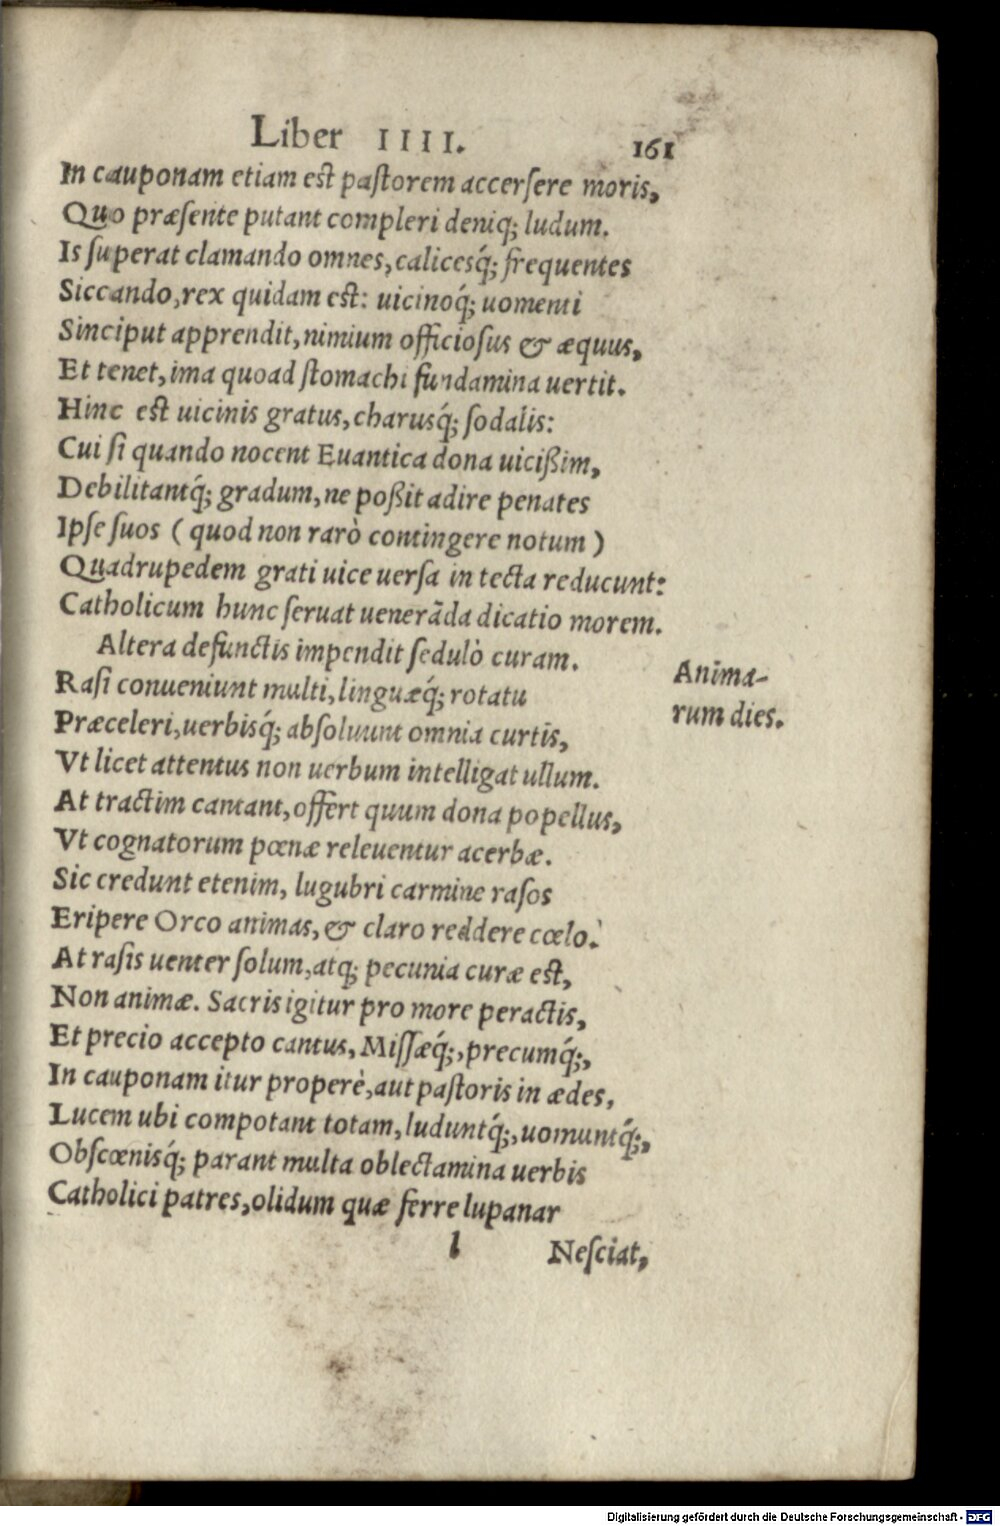 Liber IIII. 161
In cauponam etiam est pastorem accersere moris,
Quo præsente putant compleri deniq; ludum.
Is superat clamando omnes, calicesq́; frequentes
Siccando, rex quidam est: uicinoq́; uomenti
Sinciput apprendit, nimium officiosus & æquus,
Et tenet, ima quoad stomachi fundamina uertit.
Hinc est uicinis gratus, charusq́; sodalis:
Cui si quando nocent Euantica dona uicißim,
Debilitantq́; gradum, ne poßit adire penates
Ipse suos ( quod non rarò contingere notum )
Quadrupedem grati uice uersa in tecta reducunt:
Catholicum hunc seruat uenerãda dicatio morem.
Altera defunctis impendit sedulò curam.
Anima-
rum dies.
Rasi conueniunt multi, linguæq́; rotatu
Præceleri, uerbisq́; absoluunt omnia curtis,
Vt licet attentus non uerbum intelligat ullum.
At tractim cantant, offert quum dona popellus,
Vt cognatorum pœnæ releuentur acerbæ.
Sic credunt etenim, lugubri carmine rasos
Eripere Orco animas, & claro reddere cœlo.
At rasis uenter solum, atq; pecunia curæ est,
Non animæ. Sacris igitur pro more peractis,
Et precio accepto cantus, Missæq́;, precumq́;,
In cauponam itur properè, aut pastoris in ædes,
Lucem ubi compotant totam, luduntq́;, uomuntq́;,
Obscœnisq́; parant multa oblectamina uerbis
Catholici patres, olidum quæ ferre lupanar
l Nesciat,
Digitalisierung gefördert durch die Deutsche Forschungsgemeinschaft - DFG